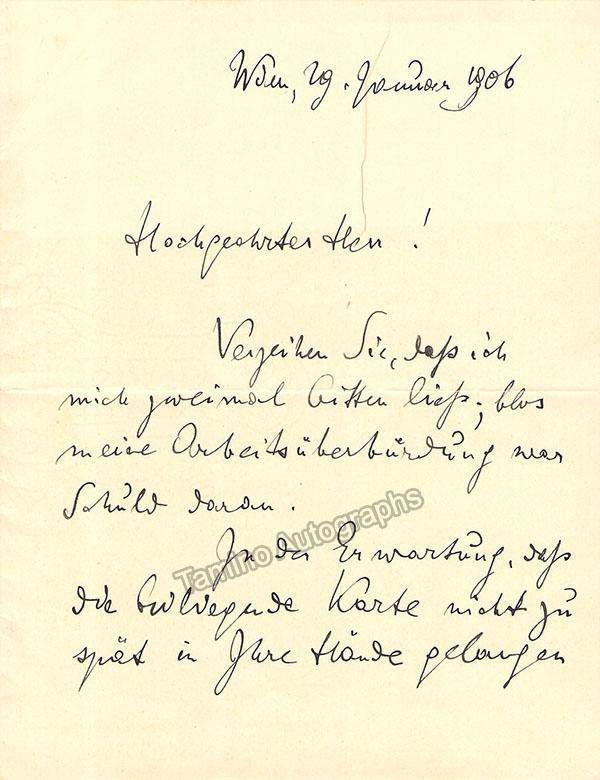 Wien, 29. Januar 1906
Hochgeehrter Herr!
Verzeihen Sie, daß ich
mich zweimal bitten ließ; blos
meine Arbeitsüberbürdung war
Schuld daran.
In der Erwartung, daß
die beiliegende Karte nicht zu
spät in Ihre Hände gelangen
Tamino Autographs